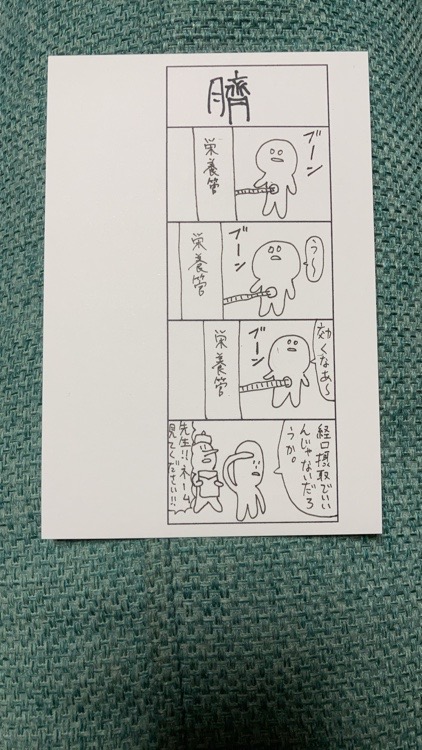 臍
ブーン
栄養管
う〜
ブーン
栄養管
効くなあ〜
ブーン
栄養管
経口摂取でいい
んじゃないだろ
うか。
先生!!ネーム
見てください!!